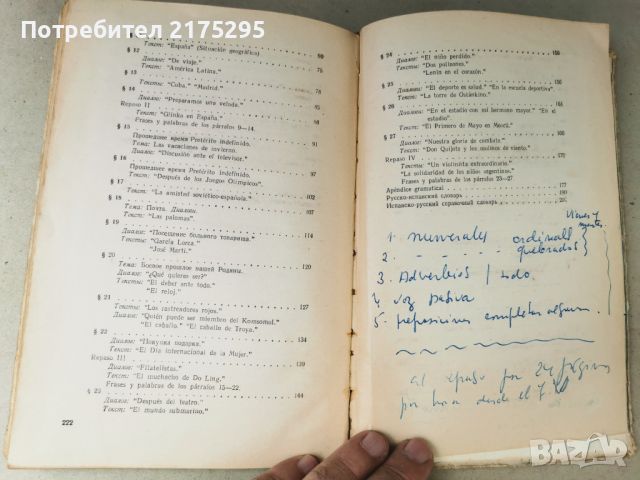 Потребител 2175295
Текст: "España" (Situación geográfica)
§ 12
Диалог: "De viaje."
Текст: "América Latina."
§ 13
Тексты: "Cuba," "Madrid."
§ 14
Диалог: "Preparamos una velada."
Repaso II
Тексты: "Glinka en España."
Frases y palabras de los párrafos 9—14.
§ 15
Прошедшее время Pretérito indefinido.
Текст: "Las vacaciones de invierno.
Диалог: "Discusión ante el televisor."
§ 16
Прошедшее время Pretérito indefinido.
Тексты: "Después de los Juegos Olímpicos"
§ 17
Текст: "La amistad soviético-española."
§ 18
Тема: Почта. Диалоги.
Текст: "Las palomas."
§ 19
Диалог: "Посещение больного товарища."
Тексты: "García Lorca."
"José Martí."
§ 20
Тема: Боевое прошлое нашей Родины.
Диалог: "¿Qué quieres ser?"
Тексты: "El deber ante todo."
"El reloj."
§ 21
Текст: "Los rastreadores rojos."
Диалог: "Quién puede ser miembro del Komsomol."
Тексты: "El caballo." "El caballo de Troya."
§ 22
Диалог: "Покупка подарка."
Текст: "El Día Internacional de la Mujer."
Repaso III
Диалог: "Filatelistas."
Текст: "El muchacho de Do Ling."
Frases y palabras del párrafos 15—22.
§ 23
Диалог: "Después del teatro."
Текст: "El mundo submarino."
90
75
78
86
91
97
102
107
120
127
134
144
222
§ 24
Диалог: "El niño perdido."
Тексты: "Dos polizones."
"Lenin en el corazón."
§ 25
Диалоги: "El deporte es salud." "En la escuela deportiva"
Текст: "La torre de Ostánkino."
§ 26
Диалоги: "En el estadio con mi hermano mayor." "En el
estadio."
Текст: "El Primero de Mayo en Moscú."
§ 27
Диалог: "Nuestra gloria de combate."
Текст: "Don Quijote y los molinos de viento."
Repaso IV
Тексты: "Un violinista extraordinario."
"La solidaridad de los niños argentinos."
Frases y palabras del párrafos 23—27
Apéndice gramatical
Русско-испанский словарь
Испанско-русский справочный словарь
150
177
1. numerales ordinal
2. - - - - quebrados
3. Adverbios
4. voz pasiva
5. preposiciones completar
al repaso por 24 páginas
por hora desde el
BAZAR